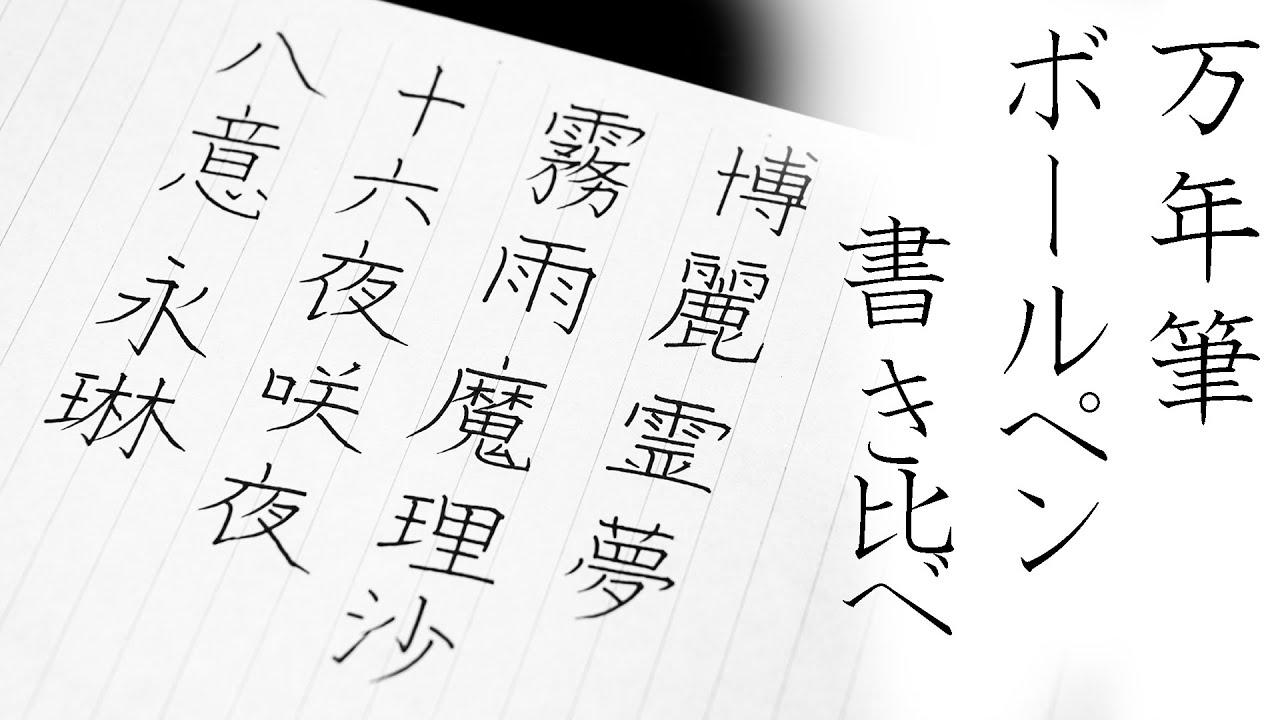 万年筆
ボールペン
書き比べ
博麗霊夢
霧雨魔理沙
十六夜咲夜
八意永琳